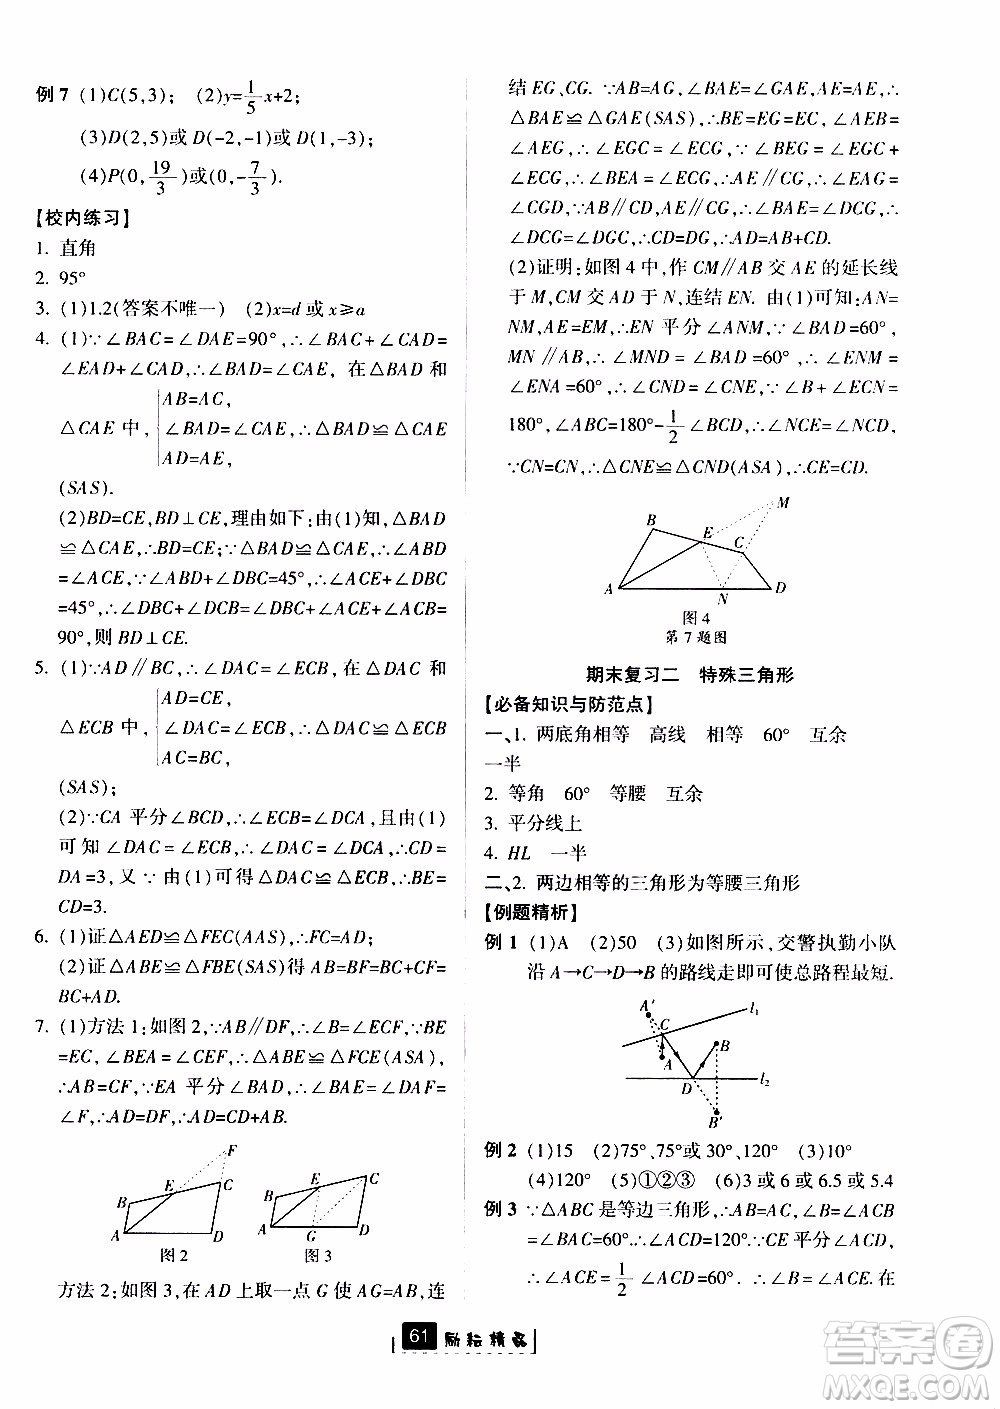 例7 (1)C(5,3); (2)y=1/5x+2;
(3)D(2,5)或D(-2,-1)或D(1,-3);
(4)P(0,19/3)或(0,-7/3).
【校内练习】
1. 直角
2. 95°
3. (1)1.2(答案不唯一) (2)x=d或x≥a
4. (1)∵∠BAC=∠DAE=90°,∴∠BAC+∠CAD=
∠EAD+∠CAD,∴∠BAD=∠CAE, 在△BAD 和
AB=AC,
△CAE 中, ∠BAD=∠CAE,∴△BAD≌△CAE
AD=AE,
(SAS).
(2)BD=CE,BD⊥CE,理由如下:由(1)知,△BAD
≌△CAE,∴BD=CE;∵△BAD≌△CAE,∴∠ABD
=∠ACE,∵∠ABD+∠DBC=45°,∴∠ACE+∠DBC
=45°,∴∠DBC+∠DCB=∠DBC+∠ACE+∠ACB=
90°,则 BD⊥CE.
5. (1)∵AD∥BC,∴∠DAC=∠ECB,在△DAC 和
AD=CE,
△ECB 中, ∠DAC=∠ECB,∴△DAC≌△ECB
AC=BC,
(SAS);
(2)∵CA 平分∠BCD,∴∠ECB=∠DCA,且由(1)
可知∠DAC=∠ECB,∴∠DAC=∠DCA,∴CD=
DA=3,又∵由(1)可得△DAC≌△ECB,∴BE=
CD=3.
6. (1)证△AED≌△FEC(AAS),∴FC=AD;
(2)证△ABE≌△FBE(SAS)得 AB=BF=BC+CF=
BC+AD.
7. (1)方法1:如图2,∵AB∥DF,∴∠B=∠ECF,∵BE
=EC,∠BEA=∠CEF,∴△ABE≌△FCE(ASA),
∴AB=CF,∵EA 平分∠BAD,∴∠BAE=∠EAD=
∠F,∴AD=DF,∴AD=CD+AB;
F
B E C
A D
图2
B E C
A G D
图3
方法2:如图3,在AD上取一点G使AG=AB,连
结EG、CG. ∵AB=AG,∠BAE=∠GAE,AE=AE,∴
△BAE≌△GAE(SAS),∴BE=EG=EC, ∠AEB=
∠AEG,∴∠EGC=∠ECG,∵∠BEG=∠EGC+
∠ECG,∴∠BEA=∠ECG,∴AE∥CG,∴∠EAG=
∠CGD,∵AB∥CD,∴∠BAD+∠DCG,∴
∠DCG=∠DGC,∴CD=DG,∴AD=AB+CD.
(2)证明:如图4中,作CM∥AB交AE的延长线
于M,CM交AD于N,连结EN. 由(1)可知:AN=
NM,AE=EM,∴EN 平分∠ANM,∵∠BAD=60°,
MN∥AB,∴∠MND=∠BAD=60°,∴∠ENM=
∠ENA=60°,∴∠CND=∠CNE,∵∠B+∠ECN=
180°,∠ABC=180°-1/2∠BCD,∴∠NCE=∠NCD,
∵CN=CN,∴△CNE≌△CND(ASA),∴CE=CD.
M
B E C
A N D
图4
第7题图
期末复习二 特殊三角形
【必备知识与防范点】
一、1. 两底角相等 高线 相等 60° 互余
一半
2. 等角 60° 等腰 互余
3. 平分线上
4. HL 一半
二、2. 两边相等的三角形为等腰三角形
【例题精析】
例1 (1)A (2)50 (3)如图所示,交警执勤小队
沿A→C→D→B的路线走即可使总路程最短.
A′
C l₁
B
A
D l₂
B′
例2 (1)15 (2)75°、75°或30°、120° (3)10
(4)120° (5)①②③ (6)3或6或6.5或5.4
例3 ∵△ABC是等边三角形,∴BC=AC,∠ACB
=∠B=60°,∵DC⊥BC,∴∠BCD=90°,∵CE平分∠ACD,
∴∠ACE=1/2∠ACD=60°.∴∠B=∠ACE. 在
61 励耘精品
答案圈
MXQE.COM